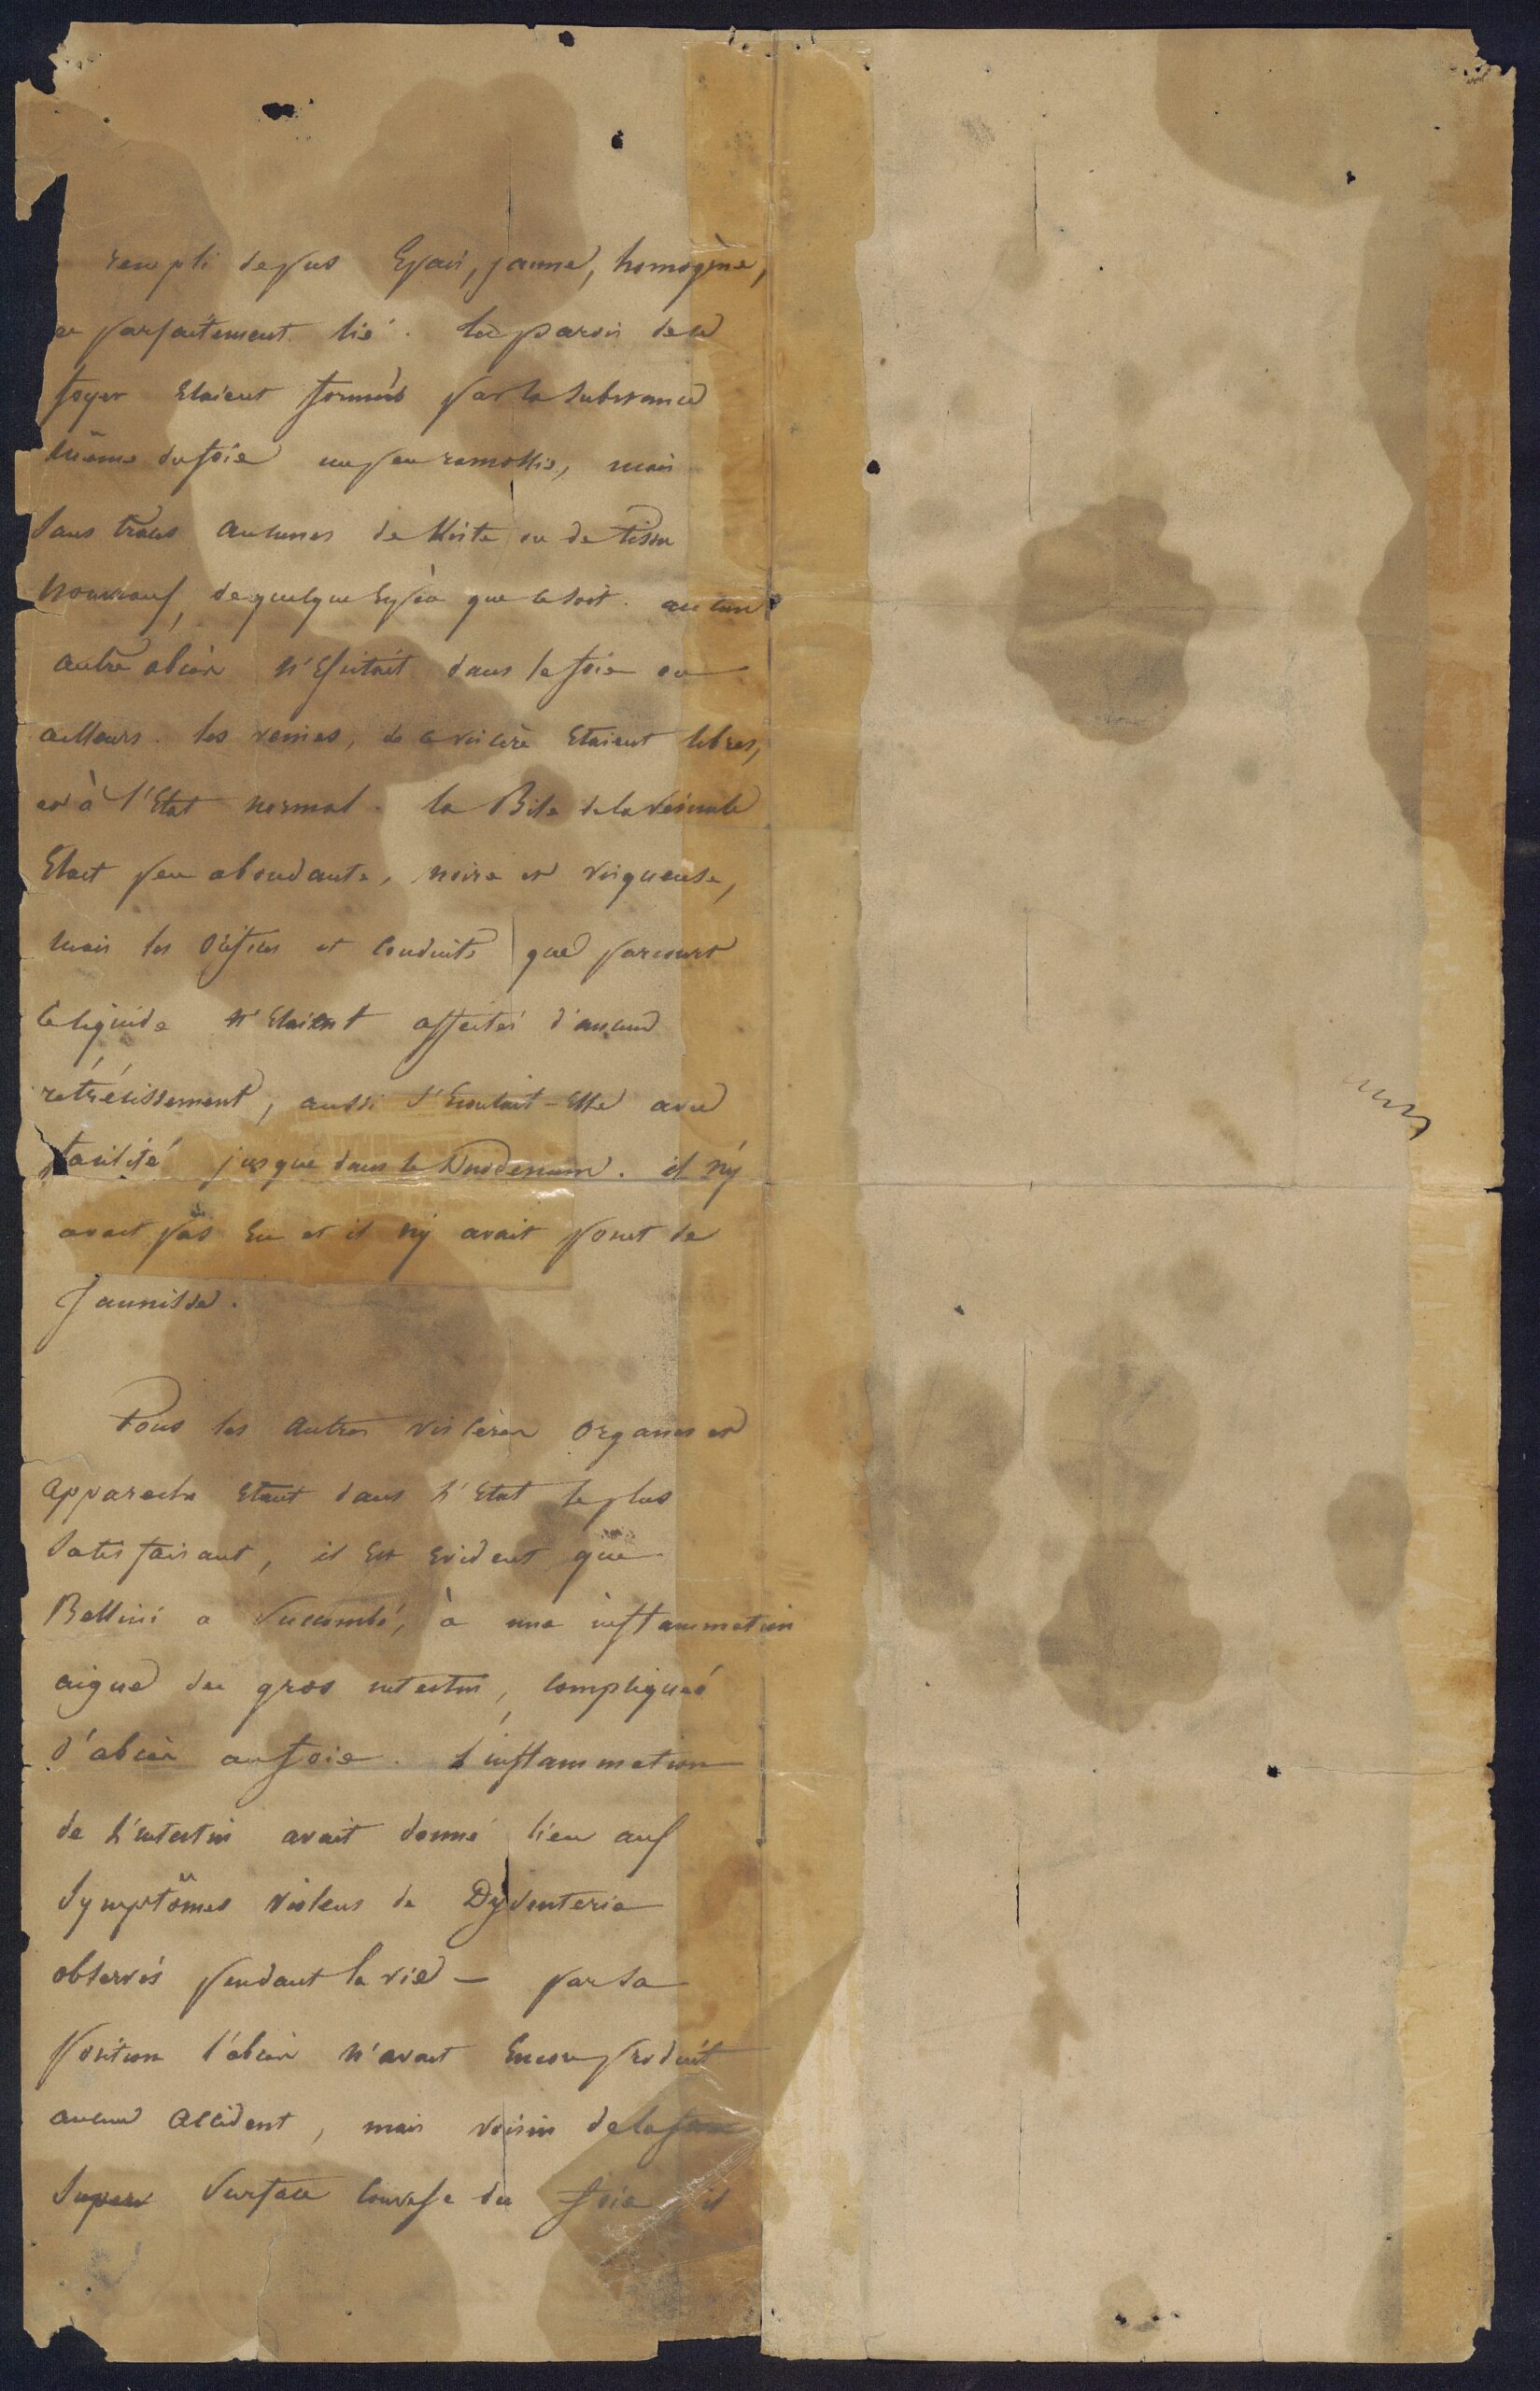 rempli de pus Epais, jaune, homogène,
et parfaitement lié. les parois de ce
foyer Etaient formées par la substance
même du foie un peu ramollie, mais
sans traces aucunes de Kiste ou de tissu
nouveau, de quelque Espèce que ce soit. aucun
autre abcès n'Existait dans le foie ou
ailleurs. les veines, de ce viscère Etaient libres,
et à l'Etat normal. la Bile de la Vésicule
Etait peu abondante, noire et visqueuse,
mais les orifices et Conduits que parcourt
ce liquide n'Etaient affectés d'aucun
rétrécissement, aussi s'Ecoulait-Elle avec
facilité jusque dans le Duodenum. il n'y
avait pas Eu et il n'y avait point de
Jaunisse.
Tous les autres viscères organes et
appareils Etant dans l'Etat le plus
satisfaisant, il Est Evident que
Bellini a succombé, à une inflammation
aigue du gros intestin, compliquée
d'abcès au foie. L'inflammation
de l'intestin avait donné lieu aux
symptômes violens de Dyssenterie
observés pendant la vie — par sa
position l'abcès n'avait Encore produit
aucun accident, mais voisin de la face
super surface convexe du foie il